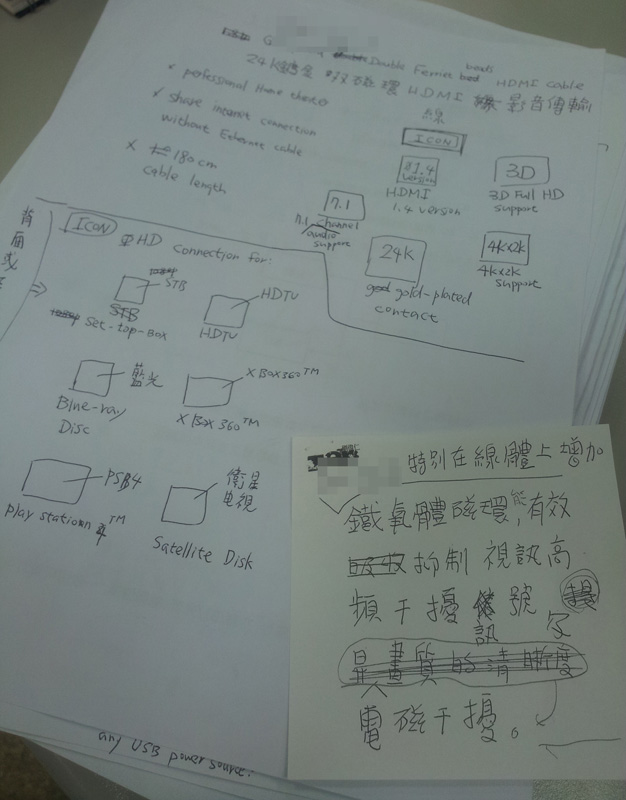 Double Ferrite bead HDMI cable
beads
24K鍍金 双磁環 HDMI 影音傳輸
線
✓ professional Home theater
✓ share internet connection
without Ethernet cable
X 180cm
cable length
ICON
1.4
version
HDMI
1.4 version
3D
3D Full HD
support
7.1
7.1 channel
audio
support
24K
gold-plated
contact
4K×2K
4K×2K
support
背
面
ICON
HD Connection for:
STB
STB
Set-top-box
HDTV
HDTV
藍光
Blue-ray
Disc
X Box360™
X Box360™
PSB4
Play statiown ™
衛星
电視
Satellite Disk
any USB power source.
特別在線體上增加
鐵氧體磁環,能有效
吸收抑制 視訊高
頻干擾 訊號
畫質的清晰度
電磁干擾。